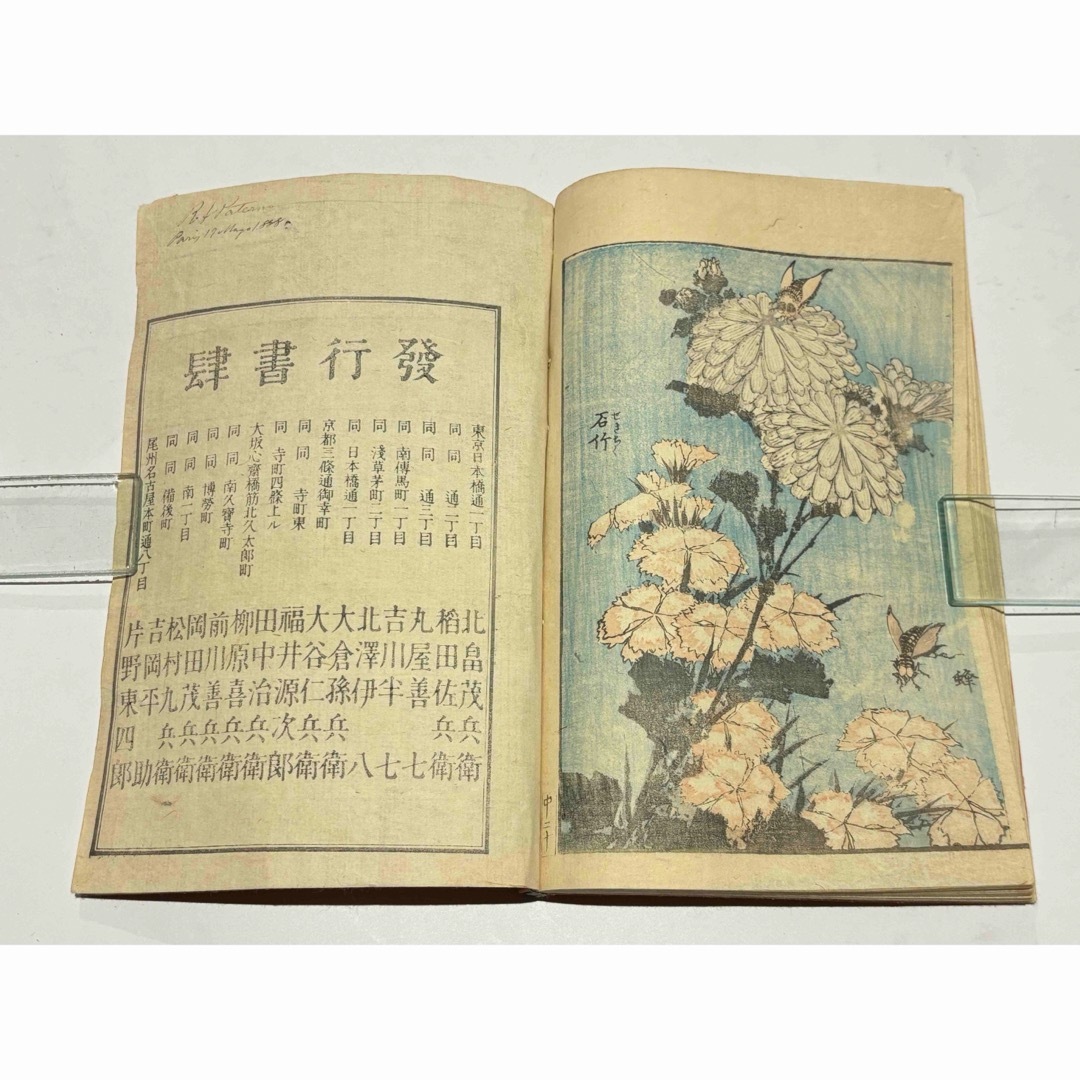 Paris
發行書肆
東京日本橋通一丁目 北畠茂兵衛
同 同 通二丁目 稻田佐兵衛
同 同 通三丁目 丸屋善七
同 南傳馬町一丁目 吉川半七
同 淺草茅町二丁目 北澤伊八
同 日本橋通一丁目 大倉孫兵衛
京都三條通御幸町 大谷仁兵衛
同 同 寺町東 福井源次郎
同 寺町四條上ル 田中治兵衛
大坂心齋橋筋北久太郎町 柳原喜兵衛
同 同 南久寶寺町 前川善兵衛
同 同 博勞町 岡田茂兵衛
同 同 南一丁目 松村九兵衛
同 同 備後町 吉岡平助
尾州名古屋本町通八丁目 片野東四郎
せきちく
石竹
蜂
中二十